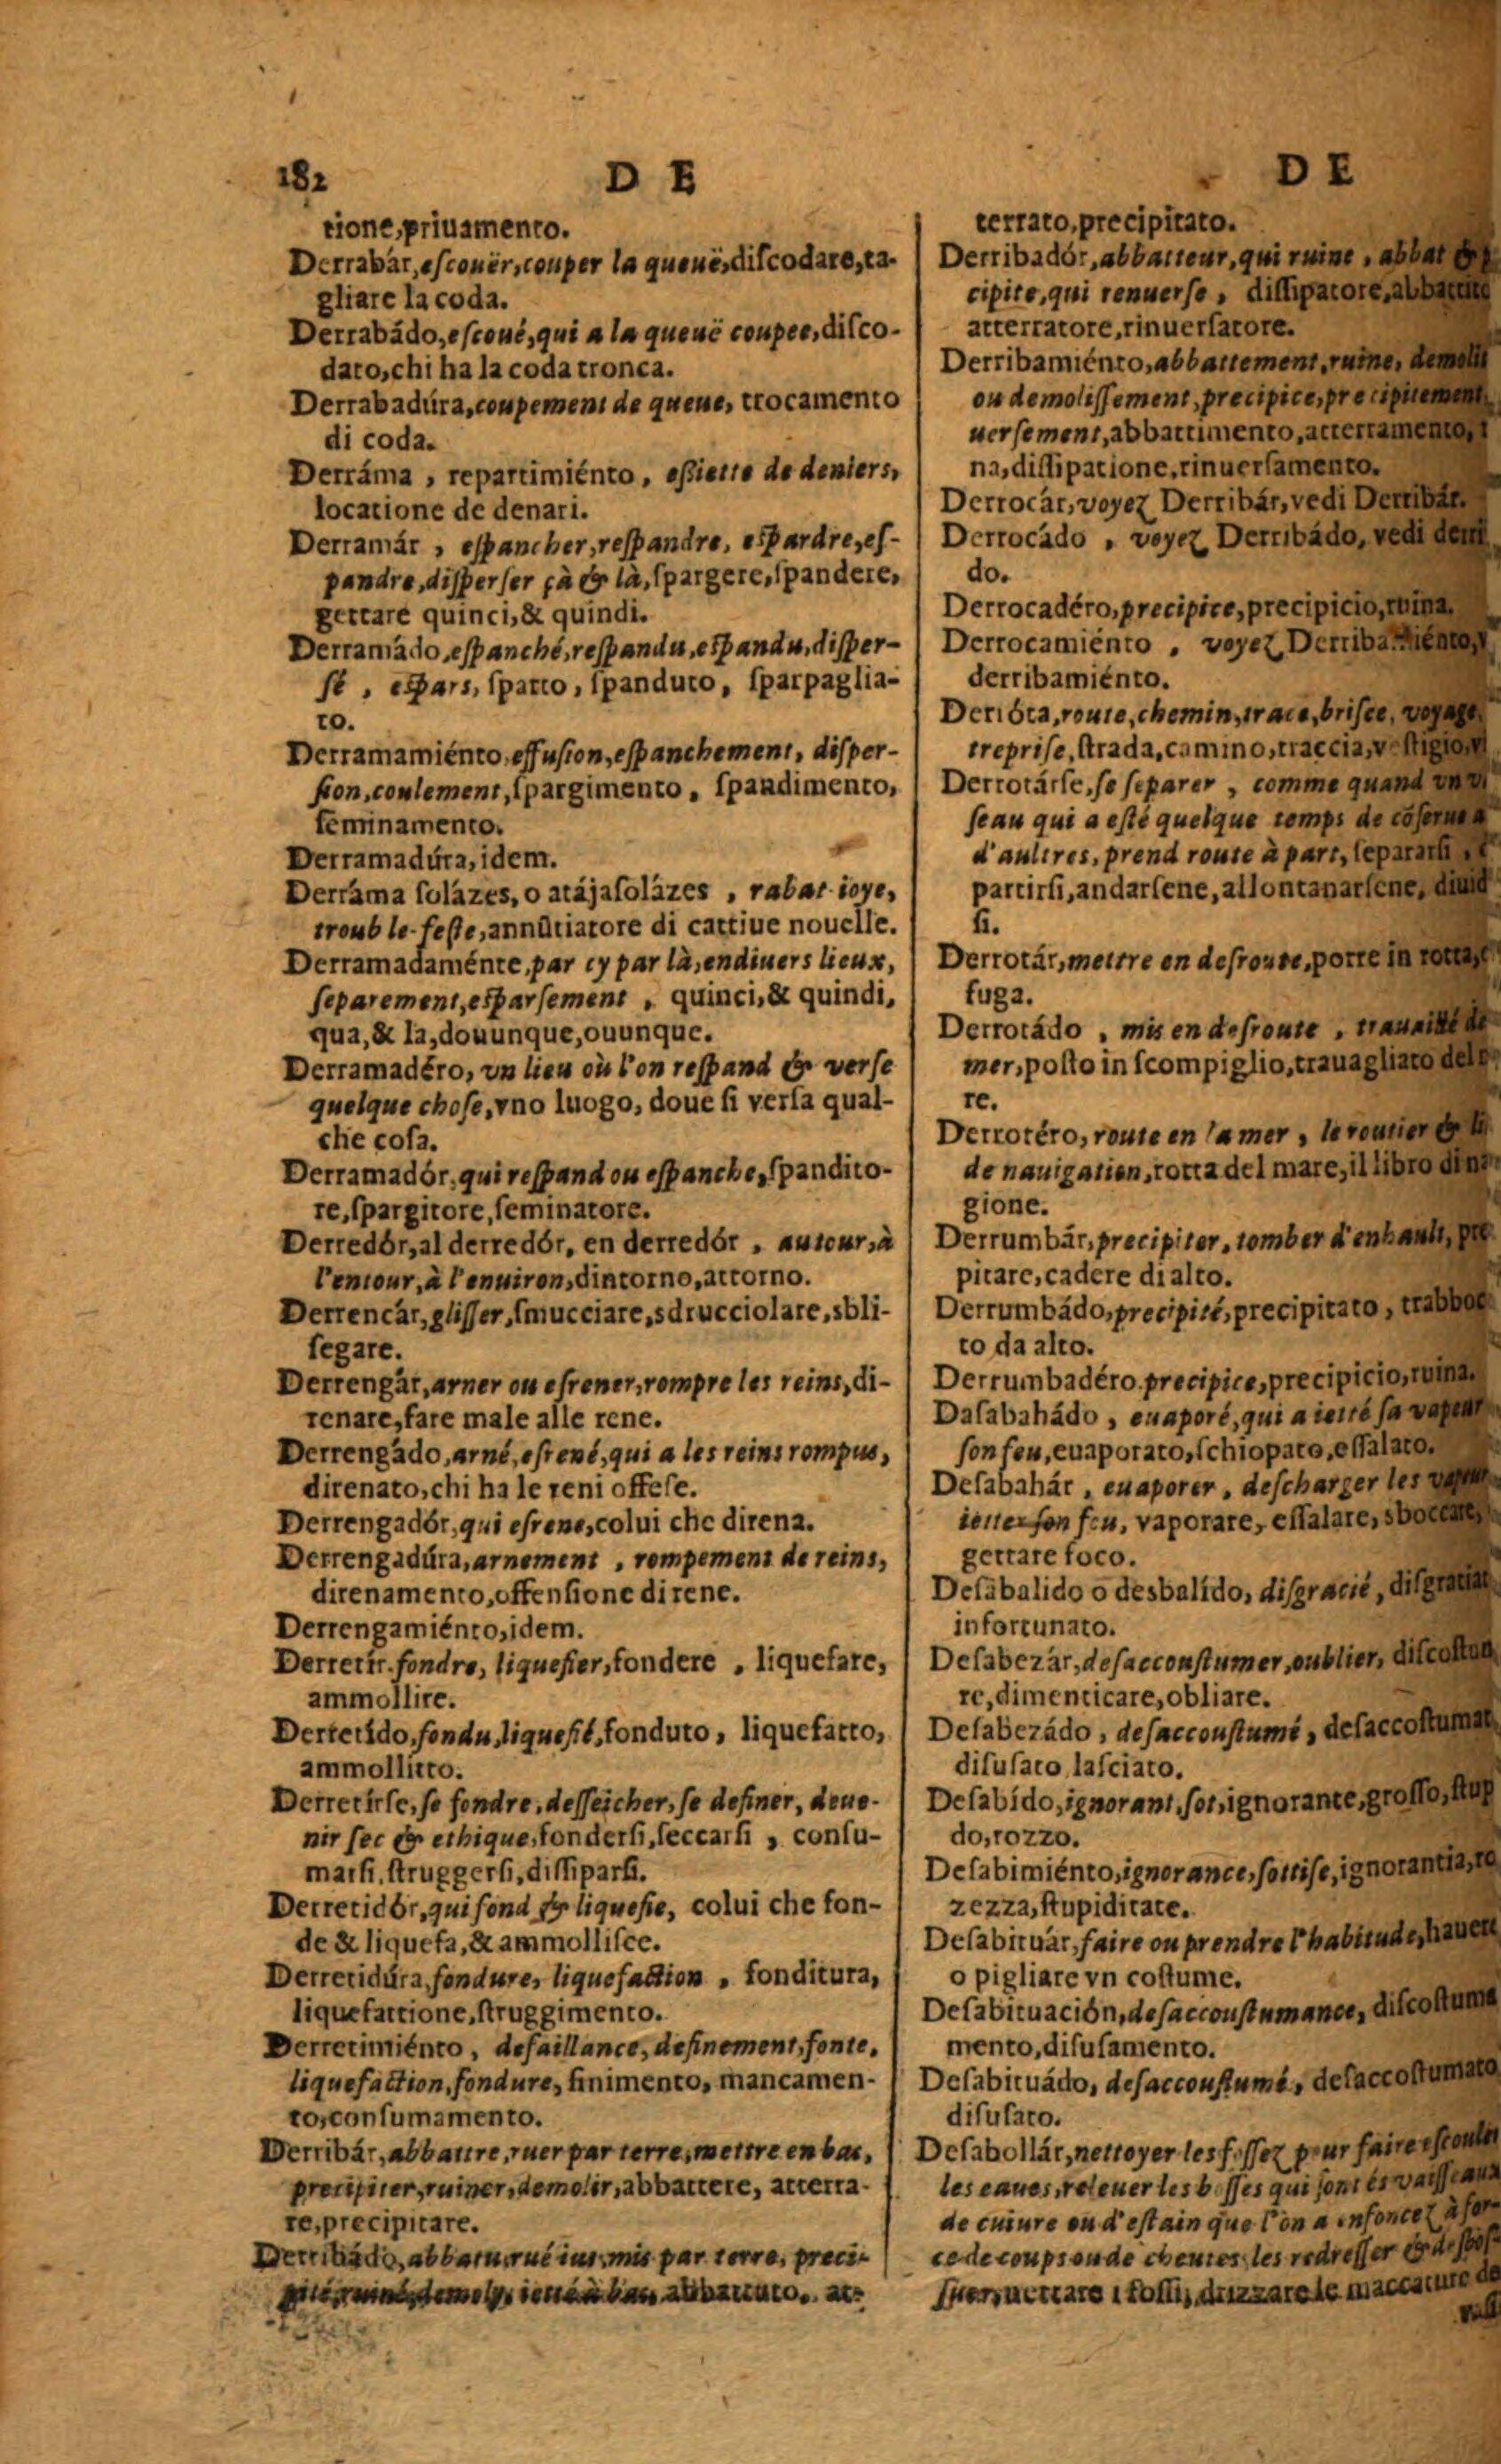 182 DE
tione,priuamento.
Derrabár,eſcouër,couper la queuë,diſcodare,ta-
gliare la coda.
Derrabádo,eſcoué,qui a la queuë coupee,diſco-
dato,chi ha la coda tronca.
Derrabadúra,coupement de queue, trocamento
di coda.
Derráma , repartimiénto , aſsiette de deniers,
locatione de denari.
Derramár , eſpancher,reſpandre, eſpardre,eſ-
pandre,diſperſer çà & là,ſpargere,ſpandere,
gettare quinci,& quindi.
Derramádo,eſpanché,reſpandu,eſpandu,diſper-
ſé , eſpars, ſparto , ſpanduto, ſparpaglia-
to.
Derramamiénto,effuſion,eſpanchement, diſper-
ſion,coulement,ſpargimento , ſpandimento,
ſeminamento.
Derramadúra,idem.
Derráma ſolázes, o atájaſolázes , rabat-ioye,
trouble-feſte,annũtiatore di cattiue nouelle.
Derramadaménte,par cy par là,endiuers lieux,
ſeparement,eſparſement , quinci,& quindi,
qua,& la,douunque,ouunque.
Derramadéro, vn lieu où l'on reſpand & verſe
quelque choſe,vno luogo, doue ſi verſa qual-
che coſa.
Derramadór,qui reſpand ou eſpanche,ſpandito-
re,ſpargitore,ſeminatore.
Derredór,al derredór, en derredór , autour,à
l'entour,à l'enuiron,dintorno,attorno.
Derrencár,gliſſer,ſmucciare,sdrucciolare,sbli-
ſegare.
Derrengár,arner ou eſrener,rompre les reins,di-
renare,fare male alle rene.
Derrengádo,arné,eſrené,qui a les reins rompus,
direnato,chi ha le reni offeſe.
Derrengadór,qui eſrene,colui che direna.
Derrengadúra,arnement , rompement de reins,
direnamento,offenſione di rene.
Derrengamiénto,idem.
Derretír.fondre, liquefier,fondere , liquefare,
ammollire.
Derretído,fondu,liquefié,fonduto, liquefatto,
ammollitto.
Derretírſe,ſe fondre,deſſeicher,ſe definer, deue-
nir ſec & ethique,fonderſi,ſeccarſi , conſu-
marſi,ſtruggerſi,diſſiparſi.
Derretidór,qui fond & liquefie, colui che fon-
de & liquefa,& ammolliſce.
Derretidúra,fondure, liquefaction , fonditura,
liquefattione,ſtruggimento.
Derretimiénto , defaillance, definement,fonte,
liquefaction,fondure, finimento, mancamen-
to,conſumamento.
Derribár,abbattre,ruer par terre,mettre en bas,
precipiter,ruiner,demolir,abbattere, atterra-
re,precipitare.
Derribádo,abbatu,rué ius,mis par terre, preci-
pité,ruiné,demoly, ietté à bas, abbattuto, at-
DE
terrato,precipitato.
Derribadór,abbatteur,qui ruine , abbat &
cipite,qui renuerſe , diſſipatore,
atterratore,rinuerſatore.
Derribamiénto,abbattement,ruine,
ou demoliſſement,precipice,precipitement,
uerſement,abbattimento,atterramento,
na,diſſipatione,rinuerſamento.
Derrocár,voyez Derribár,vedi Derribár.
Derrocádo , voyez Derribádo, vedi derri
do.
Derrocadéro,precipice,precipicio,ruina.
Derrocamiénto , voyez Derribamiénto,
derribamiénto.
Derróta,route,chemin,trace,briſee, voyage,
trepriſe,ſtrada,camino,traccia,veſtigio,
Derrotárſe,ſe ſeparer , comme quand vn
ſeau qui a eſté quelque temps de cõſerue
d'aultres, prend route à part, ſepararſi ,
partirſi,andarſene,allontanarſene, diuid
ſi.
Derrotár,mettre en deſroute,porre in rotta,
fuga.
Derrotádo , mis en deſroute , trauaillé de
mer,poſto in ſcompiglio,trauagliato del
re.
Derrotéro, route en la mer , le routier &
de nauigation,rotta del mare,il libro di
gione.
Derrumbár,precipiter, tomber d'enhault, pre
pitare,cadere di alto.
Derrumbádo,precipité,precipitato , trabboc
to da alto.
Derrumbadéro.precipice,precipicio,ruina.
Daſabahádo , euaporé,qui a ietté ſa vapeur
ſon feu,euaporato,ſchiopato,eſſalato.
Deſabahár , euaporer , deſcharger les
ietter ſon feu, vaporare, eſſalare, sboccare,
gettare foco.
Deſabalido o desbalído, diſgracié, diſgratiat
infortunato.
Deſabezár,deſaccouſtumer,oublier, diſcoſtu
re,dimenticare,obliare.
Deſabezádo , deſaccouſtumé , deſaccoſtumat
diſuſato,laſciato.
Deſabído,ignorant,ſot,ignorante,groſſo,ſtup
do,rozzo.
Deſabimiénto,ignorance,ſottiſe,ignorantia,ro
zezza,ſtupiditate.
Deſabituár,faire ou prendre l'habitude,hauere
o pigliare vn coſtume.
Deſabituación,deſaccouſtumance, diſcoſtuma
mento,diſuſamento.
Deſabituádo, deſaccouſtumé, deſaccoſtumato
diſuſato.
Deſabollár,nettoyer les foſſez pour faire eſcouler
les eaues,releuer les boſſes qui ſont és vaiſſeaux
de cuiure ou d'eſtain que l'on a enfoncez à for-
ce de coups ou de cheutes, les redreſſer &
nettare i foſſi, drizzare le maccature de